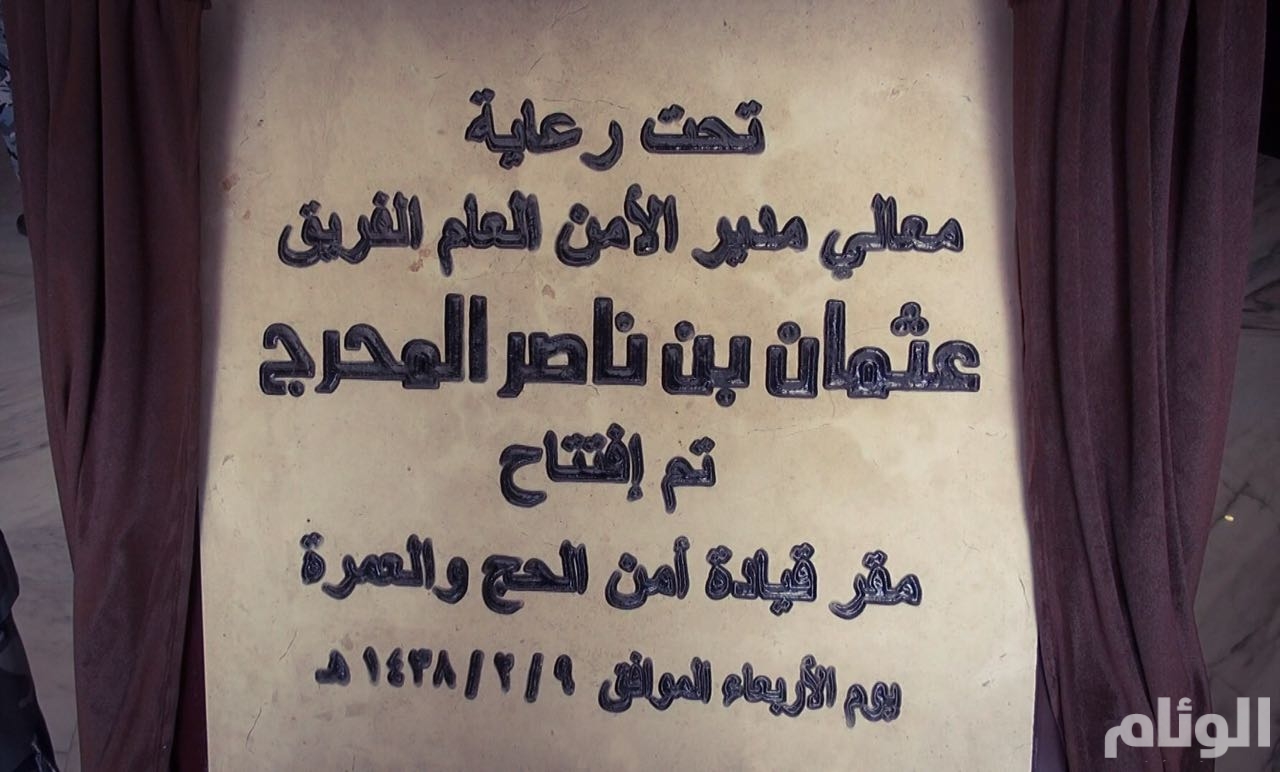 تحت رعاية
معالي مدير الأمن العام الفريق
عثمان بن ناصر المحرج
تم إفتتاح
مقر قيادة أمن الحج والعمرة
يوم الأربعاء الموافق ١٤٣٨/٢/٩ هـ
الوئام